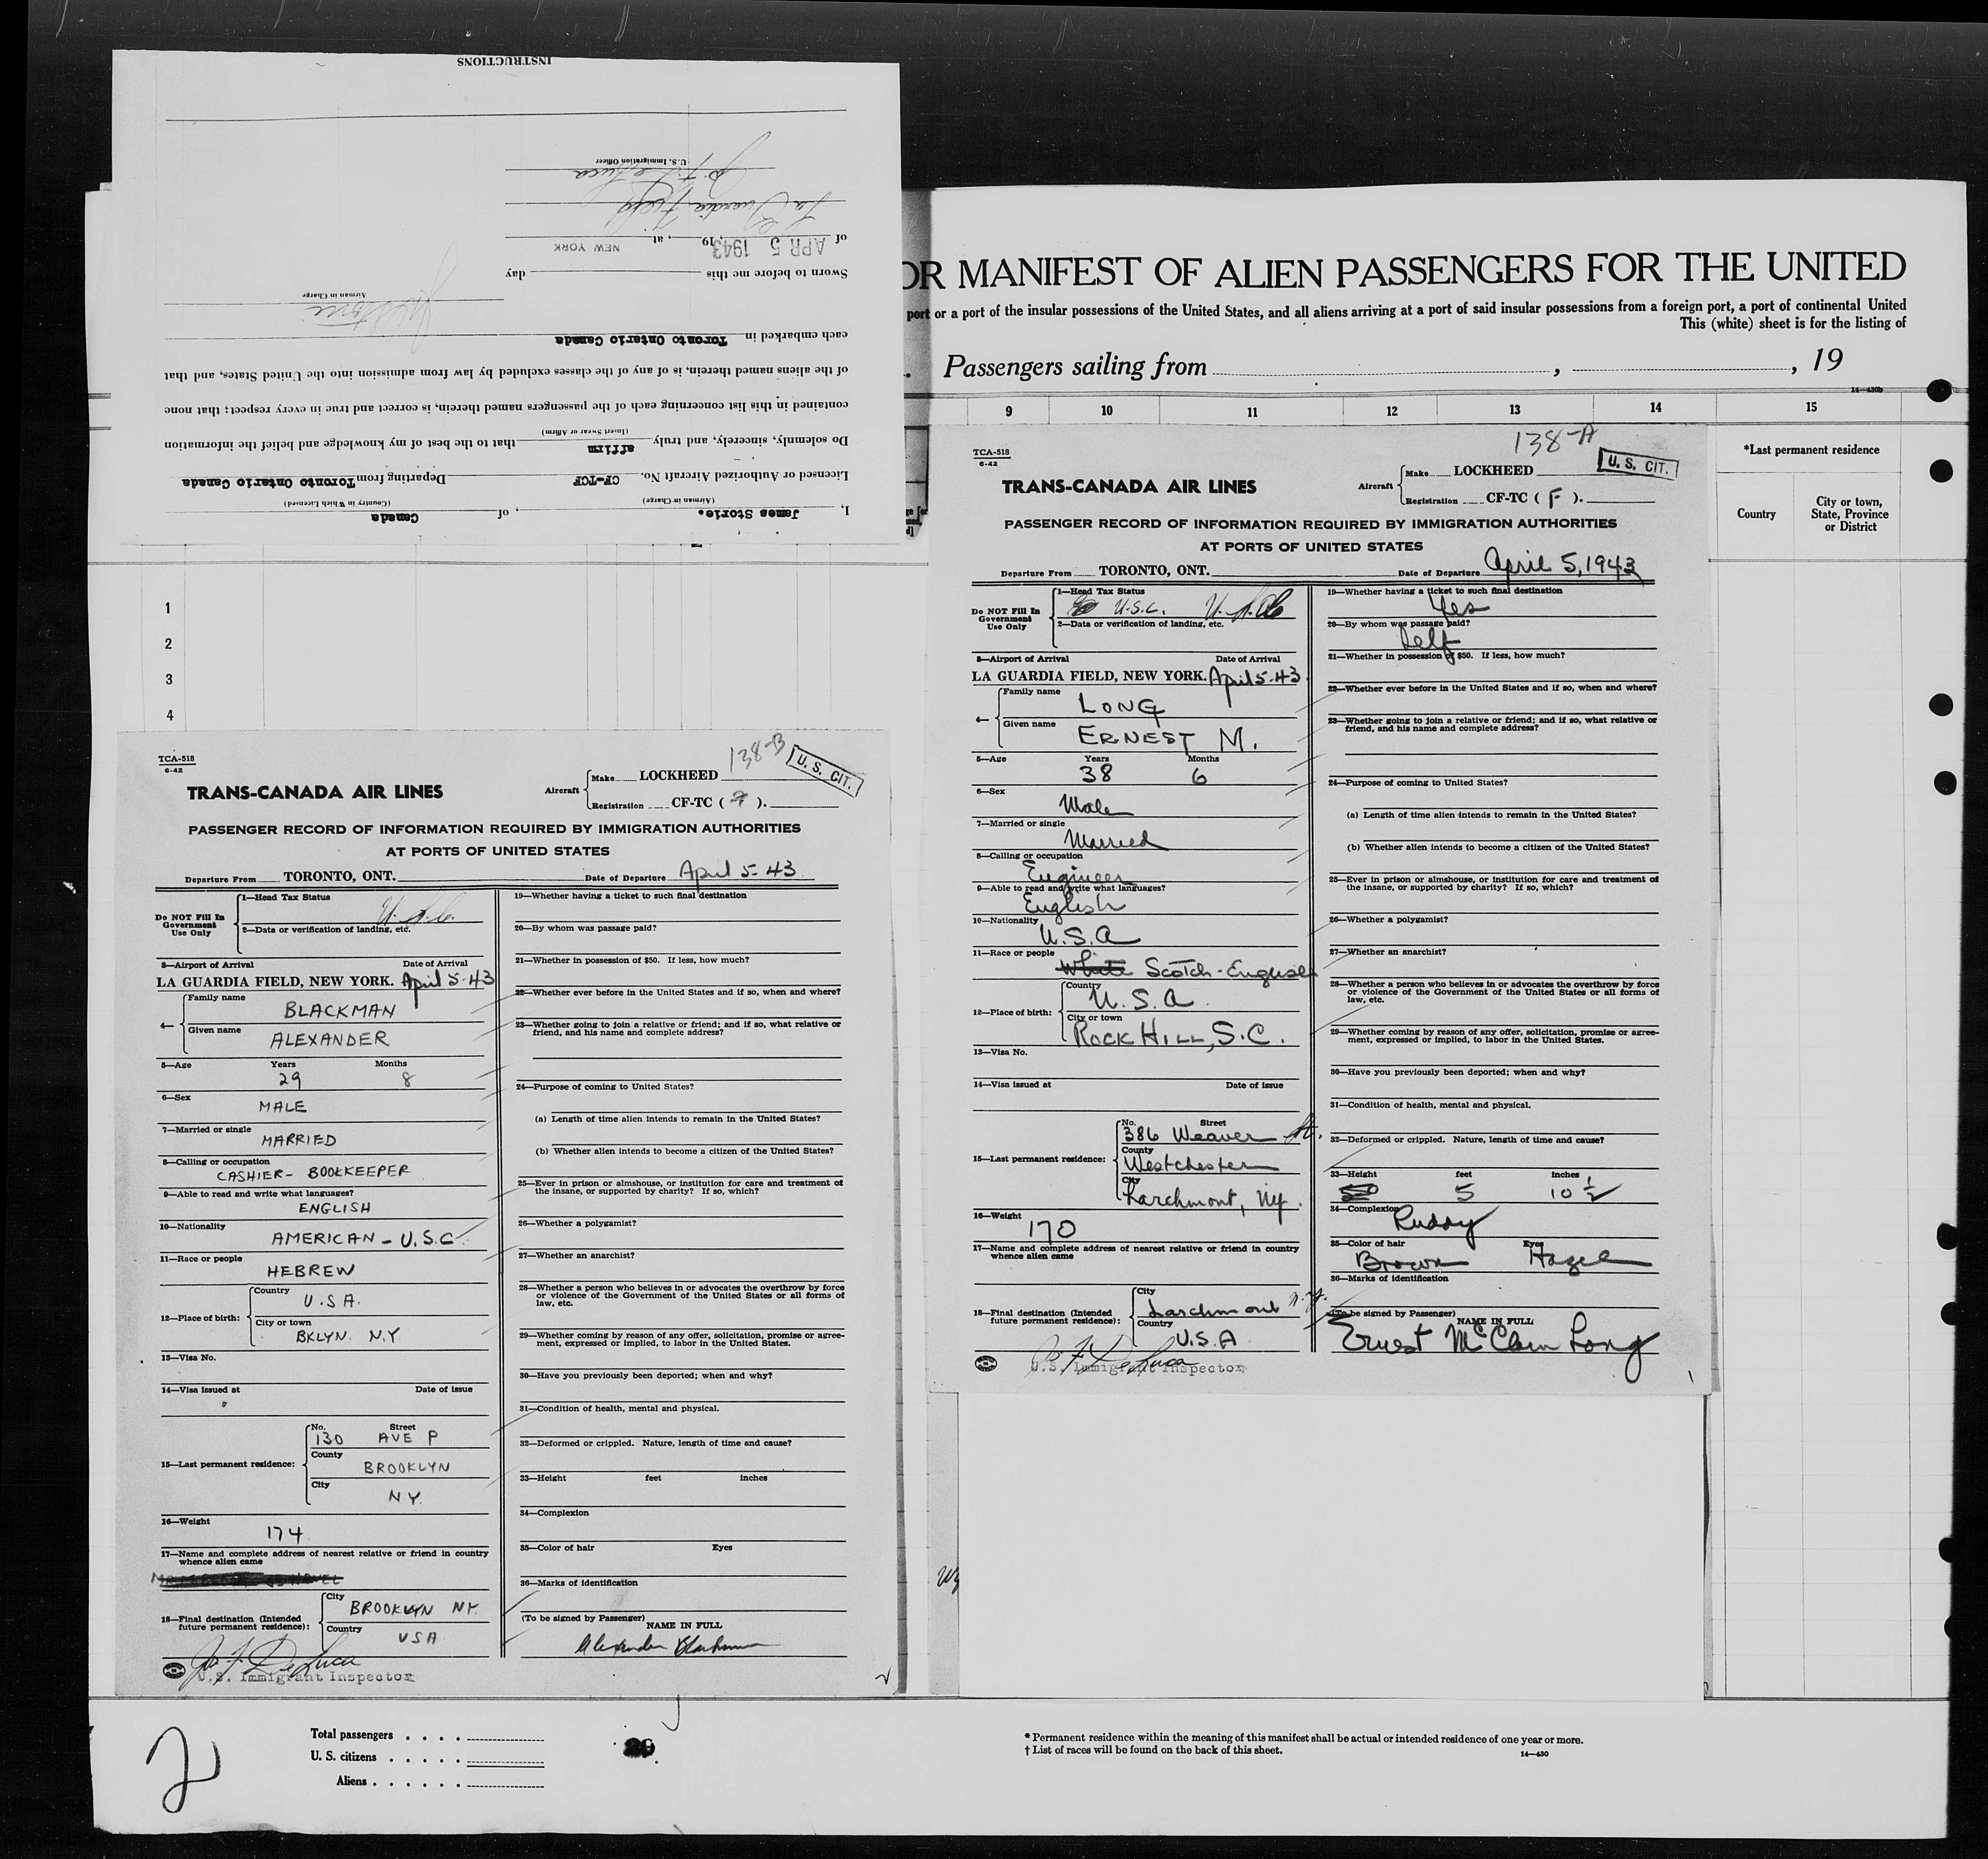 INSTRUCTIONS
U.S. Immigration Officer
La Guardia Field
of APR 5 1943, 19, at NEW YORK
Sworn to before me this day
Airman in Charge
each embarked in Toronto Ontario Canada
of the aliens named therein, is of any of the classes excluded by law from admission into the United States, and that
contained in this list concerning each of the passengers named therein, is correct and true in every respect; that none
Do solemnly, sincerely, and truly affirm that to the best of my knowledge and belief the information
(Insert Swear or Affirm)
Licensed or Authorized Aircraft No. CF-TCF Departing from Toronto Ontario Canada
(Airman in Charge) (Country in Which Licensed)
I, James Storie. , of Canada
OR MANIFEST OF ALIEN PASSENGERS FOR THE UNITED
port or a port of the insular possessions of the United States, and all aliens arriving at a port of said insular possessions from a foreign port, a port of continental United
This (white) sheet is for the listing of
Passengers sailing from , , 19
14—430b
9 10 11 12 13 14 15
*Last permanent residence
Country
City or town, State, Province or District
1
2
3
4
TCA-518
6-42
138-B
U. S. CIT.
TRANS-CANADA AIR LINES
Aircraft
Make LOCKHEED
Registration CF-TC ( 7 ).
PASSENGER RECORD OF INFORMATION REQUIRED BY IMMIGRATION AUTHORITIES
AT PORTS OF UNITED STATES
Departure From TORONTO, ONT. Date of Departure April 5-43
Do NOT Fill In Government Use Only
1—Head Tax Status
2—Data or verification of landing, etc.
3—Airport of Arrival Date of Arrival
LA GUARDIA FIELD, NEW YORK. April 5-43
4— Family name BLACKMAN
Given name ALEXANDER
5—Age Years 29 Months 8
6—Sex MALE
7—Married or single MARRIED
8—Calling or occupation CASHIER- BOOKKEEPER
9—Able to read and write what languages? ENGLISH
10—Nationality AMERICAN - U.S.C.
11—Race or people HEBREW
12—Place of birth: Country U.S.A.
City or town BKLYN. N.Y
13—Visa No.
14—Visa issued at Date of issue
15—Last permanent residence: No. 130 Street AVE P
County BROOKLYN
City N.Y.
16—Weight 174
17—Name and complete address of nearest relative or friend in country whence alien came
18—Final destination (Intended future permanent residence): City BROOKLYN NY.
Country USA
Jo. F. DeLuca
U.S. Immigrant Inspector
19—Whether having a ticket to such final destination
20—By whom was passage paid?
21—Whether in possession of $50. If less, how much?
22—Whether ever before in the United States and if so, when and where?
23—Whether going to join a relative or friend; and if so, what relative or friend, and his name and complete address?
24—Purpose of coming to United States?
(a) Length of time alien intends to remain in the United States?
(b) Whether alien intends to become a citizen of the United States?
25—Ever in prison or almshouse, or institution for care and treatment of the insane, or supported by charity? If so, which?
26—Whether a polygamist?
27—Whether an anarchist?
28—Whether a person who believes in or advocates the overthrow by force or violence of the Government of the United States or all forms of law, etc.
29—Whether coming by reason of any offer, solicitation, promise or agreement, expressed or implied, to labor in the United States.
30—Have you previously been deported; when and why?
31—Condition of health, mental and physical.
32—Deformed or crippled. Nature, length of time and cause?
33—Height feet inches
34—Complexion
35—Color of hair Eyes
36—Marks of identification
(To be signed by Passenger)
NAME IN FULL
Alexander Blackman
TCA-518
6-42
138-A
U. S. CIT.
TRANS-CANADA AIR LINES
Aircraft
Make LOCKHEED
Registration CF-TC ( F ).
PASSENGER RECORD OF INFORMATION REQUIRED BY IMMIGRATION AUTHORITIES
AT PORTS OF UNITED STATES
Departure From TORONTO, ONT. Date of Departure April 5, 1943
Do NOT Fill In Government Use Only
1—Head Tax Status U.S.C.
2—Data or verification of landing, etc.
3—Airport of Arrival Date of Arrival
LA GUARDIA FIELD, NEW YORK. April 5-43
4— Family name LONG
Given name ERNEST M.
5—Age Years 38 Months 6
6—Sex Male
7—Married or single Married
8—Calling or occupation Engineer
9—Able to read and write what languages? English
10—Nationality U.S.A
11—Race or people White Scotch-English
12—Place of birth: Country U.S.A.
City or town ROCK HILL, S.C.
13—Visa No.
14—Visa issued at Date of issue
15—Last permanent residence: No. 386 Street Weaver St.
County Westchester
City Larchmont, NY.
16—Weight 170
17—Name and complete address of nearest relative or friend in country whence alien came
18—Final destination (Intended future permanent residence): City Larchmont N.Y.
Country U.S.A
Jo. F. DeLuca
U.S. Immigrant Inspector
19—Whether having a ticket to such final destination Yes
20—By whom was passage paid? Self
21—Whether in possession of $50. If less, how much?
22—Whether ever before in the United States and if so, when and where?
23—Whether going to join a relative or friend; and if so, what relative or friend, and his name and complete address?
24—Purpose of coming to United States?
(a) Length of time alien intends to remain in the United States?
(b) Whether alien intends to become a citizen of the United States?
25—Ever in prison or almshouse, or institution for care and treatment of the insane, or supported by charity? If so, which?
26—Whether a polygamist?
27—Whether an anarchist?
28—Whether a person who believes in or advocates the overthrow by force or violence of the Government of the United States or all forms of law, etc.
29—Whether coming by reason of any offer, solicitation, promise or agreement, expressed or implied, to labor in the United States.
30—Have you previously been deported; when and why?
31—Condition of health, mental and physical.
32—Deformed or crippled. Nature, length of time and cause?
33—Height 5 feet 10 ½ inches
34—Complexion Ruddy
35—Color of hair Brown Eyes Hazel
36—Marks of identification
(To be signed by Passenger)
NAME IN FULL
Ernest McClain Long
2
Total passengers
U. S. citizens
Aliens
* Permanent residence within the meaning of this manifest shall be actual or intended residence of one year or more.
† List of races will be found on the back of this sheet.
14—430